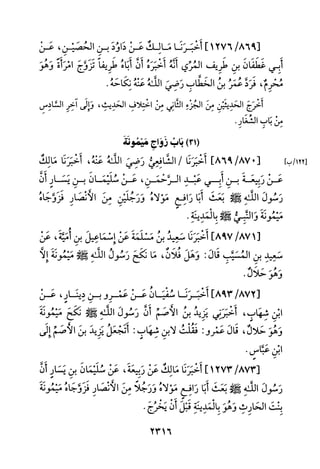 [١٢٧٦/٨٦٩] أَخْبَـرَنَـا مَـالِـكٌ عَـنْ دَاوُدَ بـنِ الحُصَـيْـنِ، عَـنْ
أَبـي غَطَفَانَ بنِ طَرِيف المُرِّي أَنَّهُ أَخْبَرَهُ أَنَّ أَبَاهُ طَريفًا تَزَوَّجَ امْرَأَةً وَهُوَ
مُحْرِمٌ، فَرَدَّ عُمَرُ بْنُ الخَطَّابِ رَضِيَ اللَّهُ عَنْهُ نِكَاحَهُ.
أَخْرَجَ الْحَدِيْثَيْنِ مِنَ الجُزْءِ الثَّانِي مِنِ اخْتِلافِ الحَدِيثِ، وَإِلَى آخِرِ السَّادِسِ
مِنْ بَابِ الشِّغَارِ.
(٣١) بَابُ زَوَاجِ مَيْمُونَةَ
[٨٦٩/٨٧٠] أَخْبَرَنَا / الشَّافِعِيُّ رَضِيَ اللَّهُ عَنْهُ، أَخْبَرَنَا مَالِكٌ [١٢٢/ب]
عَـنْ رَبِيعَـةَ بـنِ أَبـي عَبْـدِ الـرَّحـمَـنِ، عَـنْ سُلَيْمَـانَ بـنِ يَسَـارٍ أَنَّ
رَسُولَ اللَّهِ ﷺ بَعَثَ أَبَا رَافِعٍ مَوْلاهُ وَرَجُلَيْنِ مِنَ الأَنْصَارِ، فَزَوَّجَاهُ
مَيْمُونَةَ وَالنَّبِيُّ ﷺ بِالْمَدِينَةِ.
[٨٩٧/٨٧١] أَخْبَرَنَا سَعِيدُ بْنُ مَسْلَمَةَ عَنْ إِسْمَاعِيلَ بْنِ أُمَيَّةَ، عَنْ
سَعِيدِ بْنِ المُسَيِّبِ قَالَ: وَهَلَ فُلانٌ، مَا نَكَحَ رَسُولُ اللَّهِ ﷺ مَيْمُونَةَ إِلَّا
وَهُوَ حَلالٌ.
[٨٩٣/٨٧٢] أَخْبَـرَنَـا سُفْيَـانُ عَـنْ عَمْـرِو بـنِ دِينَـارٍ، عَـنْ
ابْنِ شِهَابٍ، أَخْبَرَنِي يَزِيدُ بْنُ الأَصَمِّ أَنَّ رَسُولَ اللَّهِ ﷺ نَكَحَ مَيْمُونَةَ
وَهُوَ حَلالٌ، قَالَ عَمْرو: فَقُلْتُ لابنِ شِهَابٍ: أَتَجْعَلُ يَزِيدَ بنَ الأَصَمِّ إِلَى
ابْنِ عَبَّاسٍ.
[١٢٧٣/٨٧٣] أَخْبَرَنَا مَالِكٌ عَنْ رَبِيعَةَ، عَنْ سُلَيْمَانَ بْنِ يَسَارٍ أَنَّ
رَسُولَ اللَّهِ ﷺ بَعَثَ أَبَا رَافِعٍ مَوْلاهُ وَرَجُلًا مِنَ الأَنْصَارِ فَزَوَّجَاهُ مَيْمُونَةَ
بِنْتَ الحَارِثِ وَهُوَ بِالْمَدِينَةِ قَبْلَ أَنْ يَخْرُجَ.
٢٣١٦